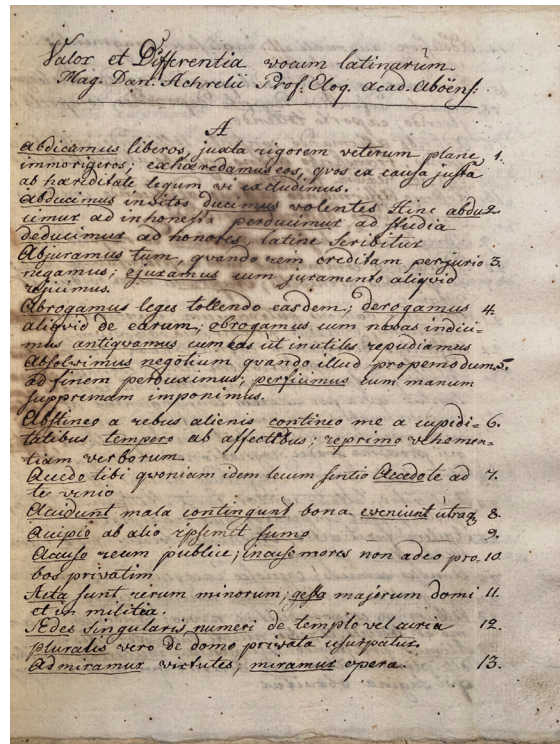 Valor et Differentia vocum latinarum
Mag. Dan. Achrelii Prof. Eloq. Acad. Aboëns:
A
Abdicamus liberos, juxta rigorem veterum plane 1.
immorigeros; exhæredamus eos, qvos ex causa justa
ab hæreditate legum vi excludimus.
Abducimus invitos ducimus volentes Hinc abdu 2.
cimur ad inhonesta perducimur ad studia
deducimur ad honores, latine scribitur
Abjuramus tum, qvando rem creditam perjurio 3.
negamus; ejuramus cum juramento aliqvid
rejicimus.
Abrogamus leges tollendo easdem; derogamus 4.
aliqvid de earum; obrogamus cum novas indici=
mus antiqvamus cum eas ut inutiles repudiamus
Absolvimus negotium qvando illud propemodum 5.
ad finem perduximus; perficimus cum manum
suppremam imponimus.
Abstineo a rebus alienis contineo me a cupidi= 6.
tatibus tempero ab affectibus; reprimo vehemen=
tiam verborum.
Accedo tibi qvoniam idem tecum sentio Accedo te ad 7.
te venio
Accidunt mala contingunt bona eveniunt utraq 8.
Accipio ab alio ipsemet sumo 9.
Accuso reum publice; incuso mores non adeo pro 10.
bos privatim
Acta sunt rerum minorum; gesta majorum domi 11.
et in militia.
Ædes singularis numeri de templo vel 12.
pluralis vero de domo privata usurpatur.
Admiramur virtutes; miramur opera. 13.